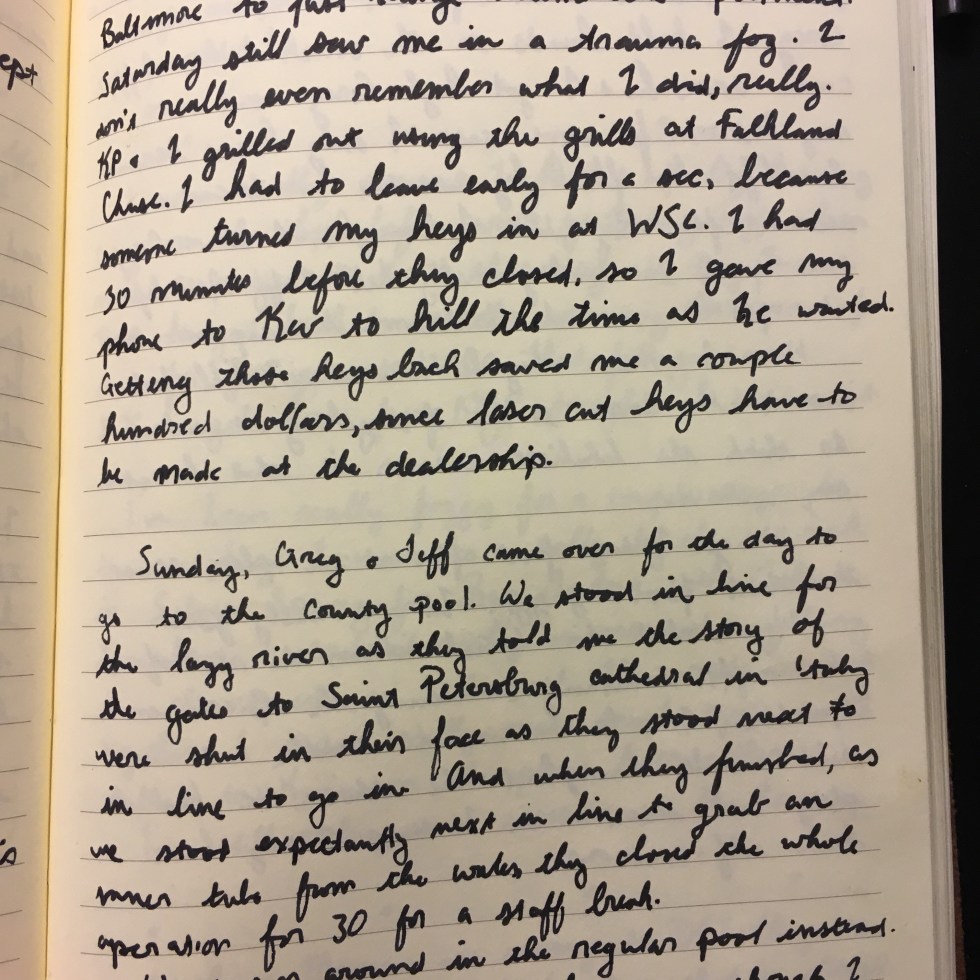 ept
Baltimore to just
Saturday still saw me in a trauma fog. I
don't really even remember what I did, really.
KP & I grilled out using the grills at Falkland
Chase. I had to leave early for a sec, because
someone turned my keys in at WSC. I had
30 minutes before they closed, so I gave my
phone to Kev to kill the time as he wanted.
Getting those keys back saved me a couple
hundred dollars, since laser cut keys have to
be made at the dealership.
Sunday, Greg & Jeff came over for the day to
go to the County pool. We stood in line for
the lazy river as they told me the story of
the gates to Saint Petersburg cathedral in Italy
were shut in their face as they stood next to
in line to go in. And when they finished, as
we stood expectantly next in line to grab an
inner tube from the water, they closed the whole
operation for 30 for a staff break.
around in the regular pool instead.